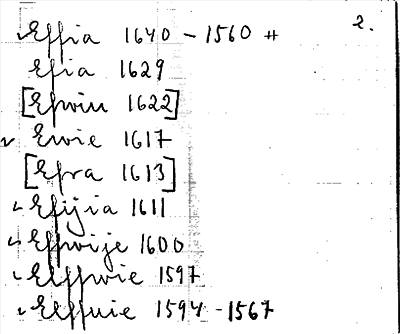 2.
Effia 1640 - 1560 #
Efia 1629
[Efwiu 1622]
Ewie 1617
[Efra 1613]
Efijia 1611
Effwije 1600
Elffwie 1597
Elffuie 1594 - 1567